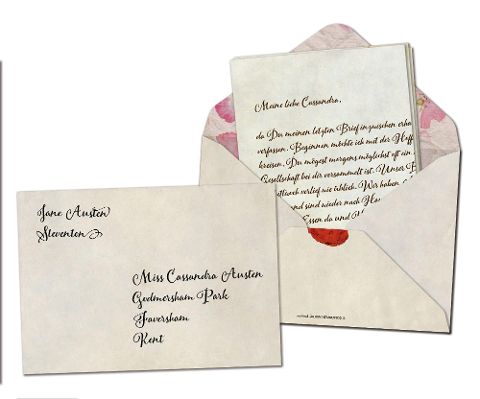 Jane Austen
Steventon
Miss Cassandra Austen
Godmersham Park
Faversham
Kent
Meine liebe Cassandra,
da Du meinen letzten Brief inzwischen erha
verfassen. Beginnen möchte ich mit der Hoff
kreisen. Du mögest morgens möglichst oft ein
Gesellschaft bei der versammelt ist. Unser B
tlich verlief wie üblich. Wir haben
und sind wieder nach H
Essen da und